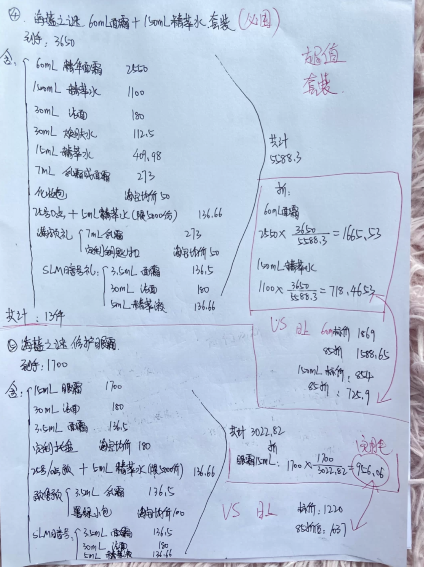 ④ 海蓝之谜 60mL面霜 + 150mL精萃水 套装 (必囤)
到手: 3650
含:
60mL 精华面霜 2550
150mL 精萃水 1100
30mL 洁面 180
30mL 112.5
15mL 精萃水 409.98
7mL 273
化妆包 50
+ 5mL精萃水(限5000份) 136.66
7mL 乳霜 273
50
SLM暗号礼: 3.5mL 面霜 136.5
30mL 洁面 180
5mL 精萃液 136.66
共计: 13件
超值
套装
共计
5588.3
折:
60mL面霜
2550 × 3650/5588.3 = 1665.53
150mL精萃水
1100 × 3650/5588.3 = 718.4653
VS 日上 60ml标价 1869
85折 1588.65
150mL 标价: 854
85折: 725.9
海蓝之谜 修护眼霜
到手: 1700
含:
15mL 眼霜 1700
30mL 洁面 180
3.5mL 面霜 136.5
180
+ 5mL精萃水(限5000份) 136.66
3.5mL 乳霜 136.5
100
SLM暗号: 3.5mL 面霜 136.5
30mL 洁面 180
5mL 精萃液 136.66
共计 3022.82
折
眼霜15mL: 1700 × 1700/3022.82 = 956.06
VS 日上 标价: 1220
85折: 1037